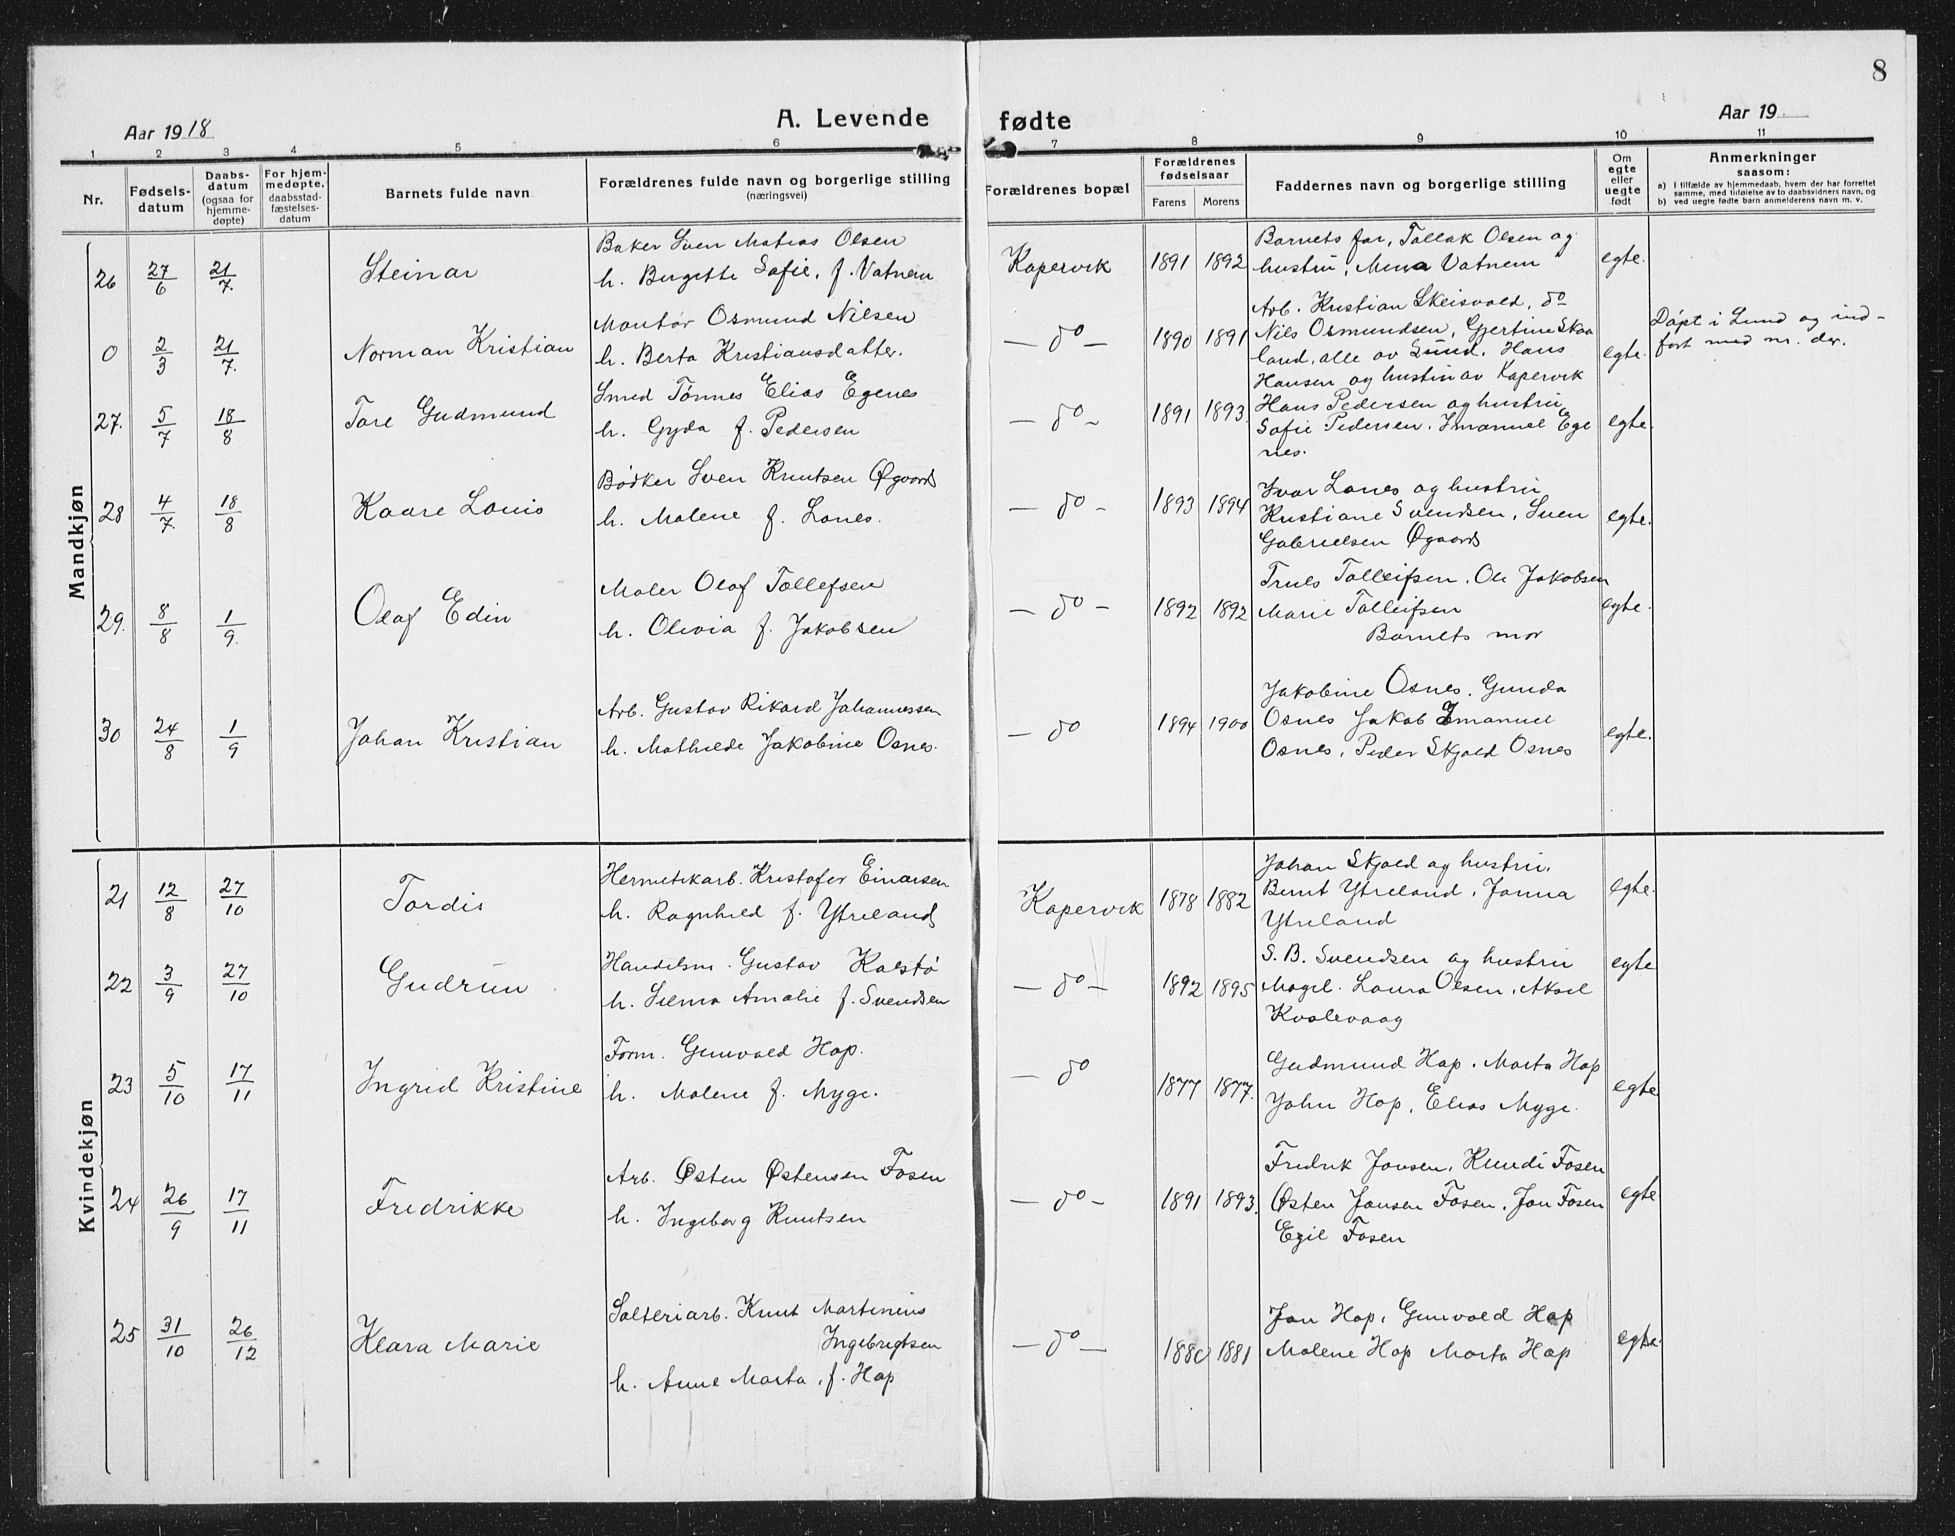 8
Aar 1918
A. Levende fødte
Aar 19
1 2 3 4 5 6 7 8 9 10 11
Nr.
Fødsels-
datum
Daabs-
datum
(ogsaa for
hjemme-
døpte)
For hjem-
medøpte,
daabsstad-
fæstelses-
datum
Barnets fulde navn
Forældrenes fulde navn og borgerlige stilling
(næringsvei)
Forældrenes bopæl
Forældrenes
fødselsaar
Farens Morens
Faddernes navn og borgerlige stilling
Om
egte
eller
uegte
født
Anmerkninger
saasom:
a) I tilfælde av hjemmedaab, hvem der har forrettet
samme, med tilføielse av to daabsvidners navn, og
b) ved uegte fødte barn anmelderens navn m. v.
Mandkjøn
26 27/6 21/7. Steinar
Baker Sven Matias Olsen
h. Birgitte Sofie, f. Vatnem
Kopervik 1891 1892
Barnets far, Tollak Olsen og
hustru, Mena Vatnem
egte.
0 2/3 21/7. Norman Kristian
Montør Osmund Nilsen
h. Berta Kristiansdatter.
— do — 1890 1891
Arb. Kristian Skeisvold, do
Nils Osmundsen, Gjertine Skaa
land, alle av Sund. Hans
Hansen og hustru av Kopervik
egte.
Døpt i Sund og ind-
ført med nr. der.
27. 5/7 18/8 Tore Gudmund
Smed Tønnes Elias Egenes
h. Gyda f. Pedersen
— do – 1891 1893.
Hans Pedersen og hustru
Sofie Pedersen, Imanuel Ege
nes.
egte.
28 4/7. 18/8 Kaare Louis
Bødker Sven Knutsen Øgaard
h. Malene f. Lones.
— do – 1893 1894
Ivar Lones og hustru
Kristiane Svendsen, Sven
Gabrielsen Øgaard
egte.
29. 8/8 1/9. Olaf Edin
Maler Olaf Tollefsen
h. Olivia f. Jakobsen
— do – 1892 1892
Truls Tolleifsen, Ole Jakobsen
Marie Tolleifsen
Barnets mor
egte.
30 24/8 1/9 Johan Kristian
Arb. Gustav Rikard Johannessen
h. Mathilde Jakobine Osnes.
— do 1894 1900
Jakobine Osnes, Gunda
Osnes Jakob Imanuel
Osnes, Peder Skjold Osnes
egte.
Kvindekjøn
21 12/8 27/10 Tordis
Hermetikarb. Kristofer Einarsen
h. Ragnhild f. Ytreland
Kopervik 1878 1882
Johan Skjold og hustru,
Bernt Ytreland, Janna
Ytreland
egte.
22 3/9 27/10 Gudrun
Handelsm. Gustav Kolstø
h. Selma Amalie f. Svendsen
— do — 1892 1895
S. B. Svendsen og hustru
Magd. Laura Olsen, Aksel
Kvalevaag
egte
23 5/10 17/11 Ingrid Kristine
Form. Gunvald Hop.
h. Malene f. Myge.
— do 1877 1877.
Gudmund Hop, Marta Hop
John Hop, Elias Myge.
egte.
24 26/9 17/11 Fredrikke
Arb. Østen Østensen Fosen
h. Ingeborg Knutsen
— do – 1891 1893.
Fredrik Jonsen, Knudi Fosen
Østen Jonsen Fosen, Jon Fosen
Egil Fosen
egte
25 31/10 26/12 Klara Marie
Salteriarb. Knut Martinius
Ingebrigtsen
h. Anne Marta, f. Hop
— do — 1880 1881
Jon Hop, Gunvald Hop
Malene Hop Marta Hop
egte.